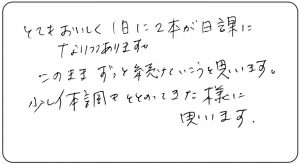 とてもおいしく1日に2本が日課に
なりつつあります。
このまま ずっと続けていこうと思います。
少し体調もととのってきた様に
思います.